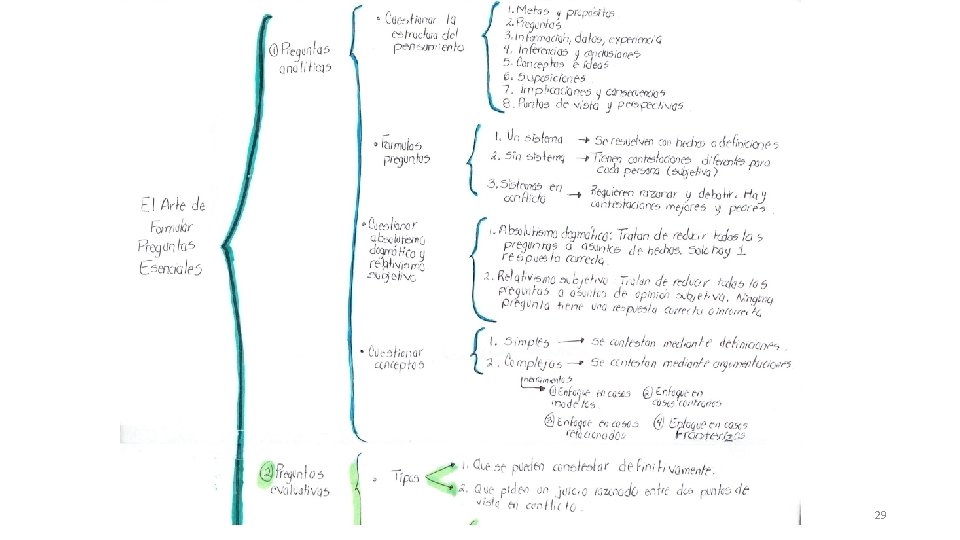 El Arte de
Formular
Preguntas
Esenciales
① Preguntas
analíticas
• Cuestionar la
estructura del
pensamiento
1. Metas y propósitos.
2. Preguntas
3. Información, datos, experiencia
4. Inferencias y conclusiones
5. Conceptos e ideas
6. Suposiciones
7. Implicaciones y consecuencias
8. Puntos de vista y perspectivas.
• Formulas
preguntus
1. Un sistema → Se resuelven con hechos o definiciones
2. Sin sistema → Tienen contestaciones diferentes para
cada persona (subjetiva)
3. Sistemas en
conflicto → Requieren razonar y debatir. Hay
contestaciones mejores y peores.
• Cuestionar
absolutismo
dogmático y
relativismo
subjetivo
1. Absolutismo dogmático: Tratan de reducir todas las
preguntas a asuntos de hechos. Solo hay 1
respuesta correcta.
2. Relativismo subjetivo Tratan de reducir todas las
preguntas a asuntos de opinión subjetiva. Ninguna
pregunta tiene una respuesta correcta o incorrecta
• Cuestionar
conceptos
1. Simples → Se contestan mediante definiciones.
2. Complejas → Se contestan mediante argumentaciones
① Enfoque en casos
modelos
② Enfoque en
casos contrarios
③ Enfoque en casos
relacionados
④ Enfoque en casos
Fronterizos
② Preguntas
evaluativas
• Tipos
1. Que se pueden constestar definitivamente.
2. Que piden un juicio razonado entre dos puntos de
vista en conflicto.
29